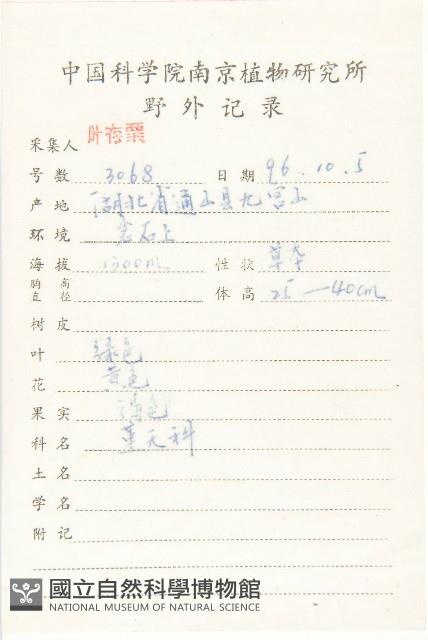 中国科学院南京植物研究所
野外记录
采集人 叶存粟
号数 3068 日期 96.10.5
产地 湖北省通山县九宫山
环境 岩石上
海拔 1300m 性状 草本
胸高直径 体高 25—40cm
树皮
叶 绿色
花 黄色
果实 色
科名 景天科
土名
学名
附记
國立自然科學博物館
NATIONAL MUSEUM OF NATURAL SCIENCE